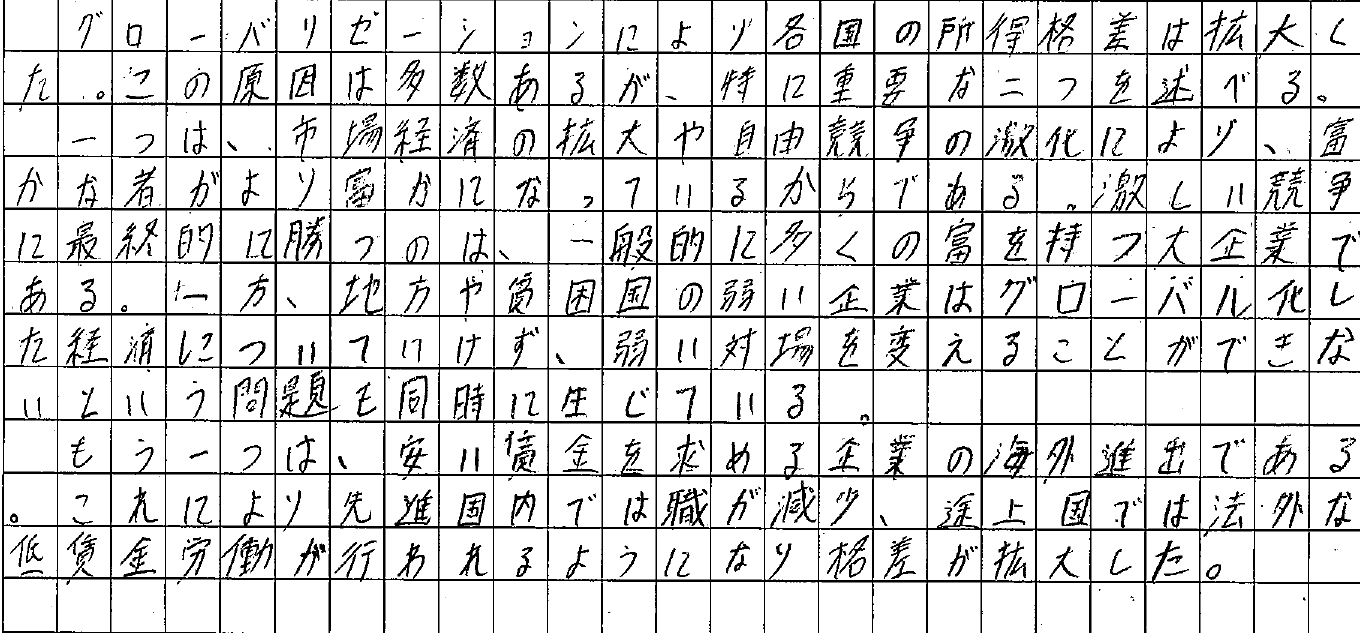 グローバリゼーションにより各国の所得格差は拡大し
た。この原因は多数あるが、特に重要な二つを述べる。
一つは、市場経済の拡大や自由競争の激化により、富
かな者がより富かになっているからである。激しい競争
に最終的に勝つのは、一般的に多くの富を持つ大企業で
ある。一方、地方や貧困国の弱い企業はグローバル化し
た経済についていけず、弱い対場を変えることができな
いという問題も同時に生じている。
もう一つは、安い賃金を求める企業の海外進出である
。これにより先進国内では職が減少、途上国では法外な
低賃金労働が行われるようになり格差が拡大した。